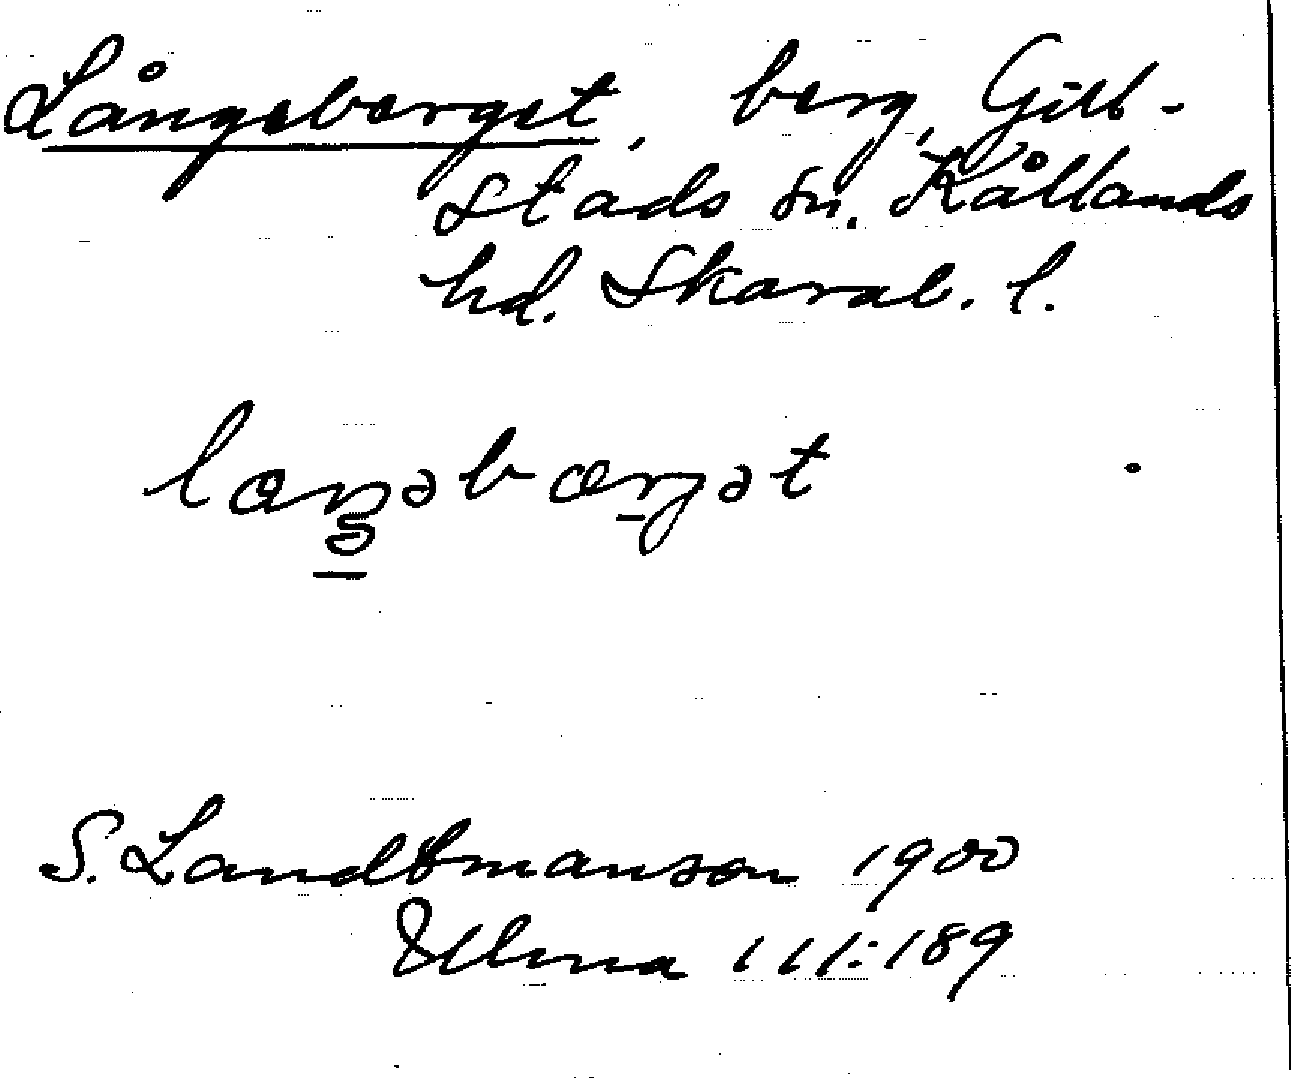 Långeberget, berg, Gill-
stads sn. Kållands
hd. Skarab. l.
S. Landtmanson 1900
Ulma 111:189